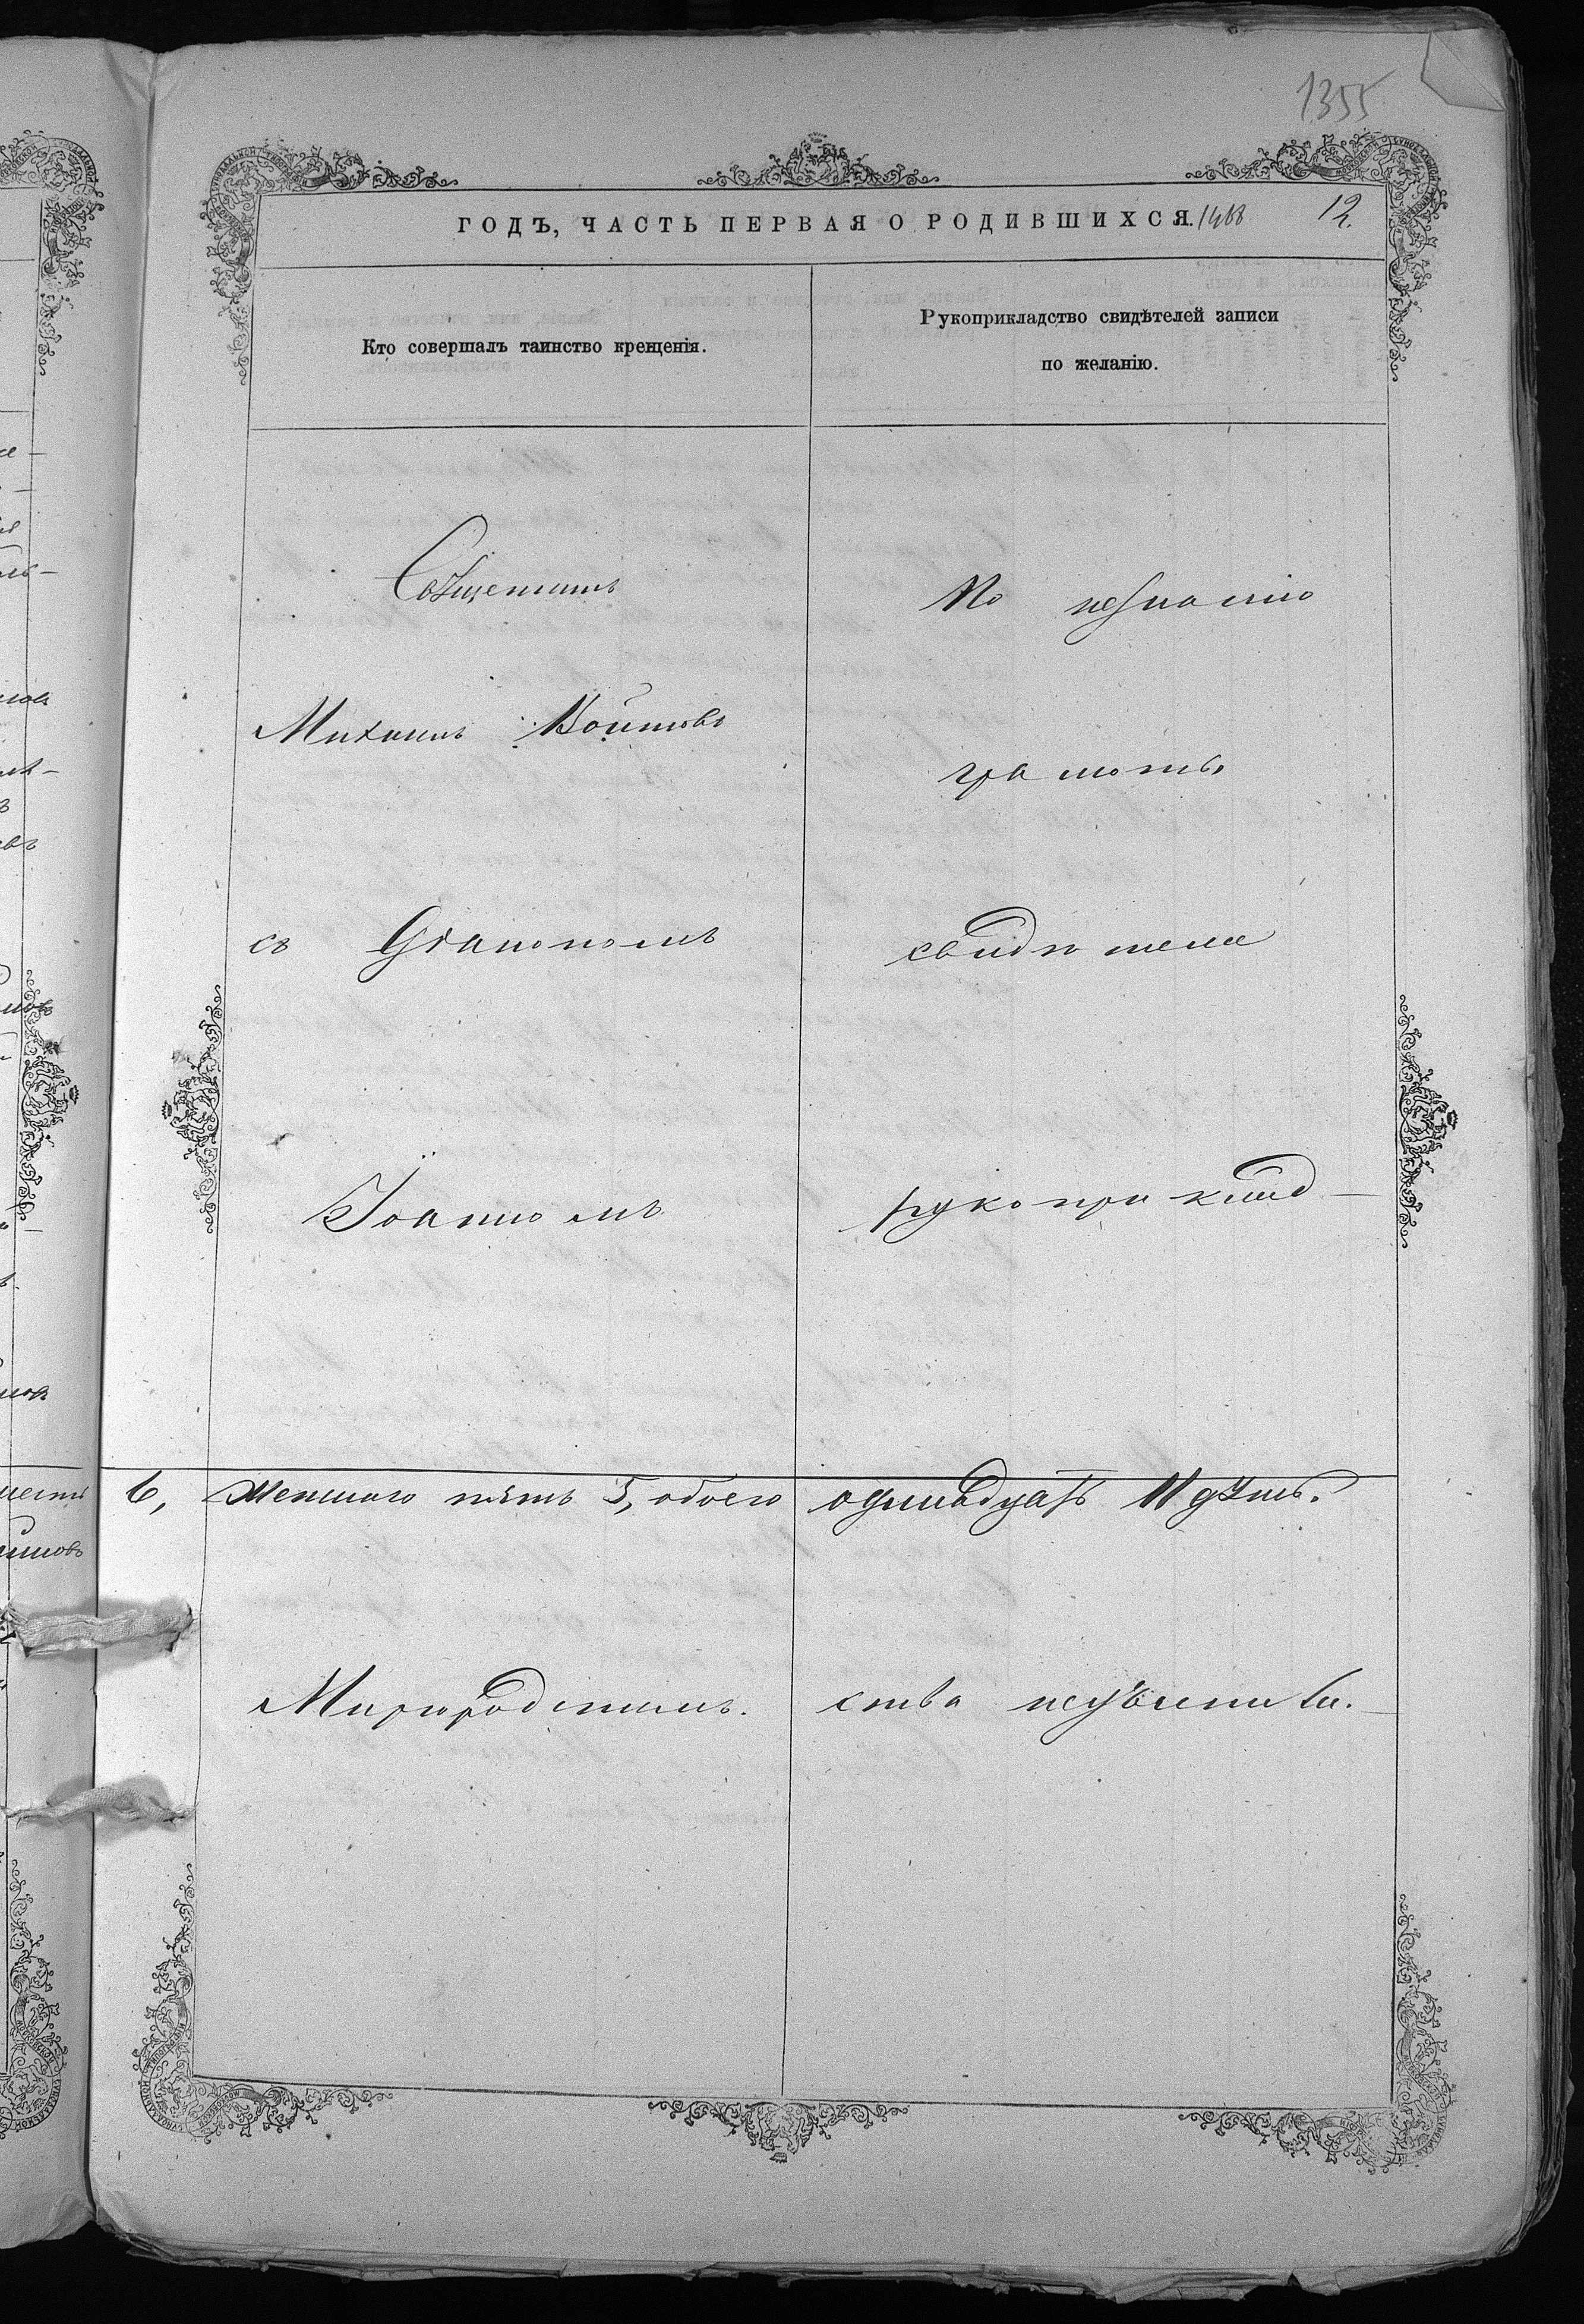 1355
ГОДЪ, ЧАСТЬ ПЕРВАЯ О РОДИВШИХСЯ. 1468
12.
Кто совершалъ таинство крещенія.
Рукоприкладство свидѣтелей записи
по желанію.
Священникъ
По незнанію
Михаилъ Войтовъ
грамоты
съ Діакономъ
свидѣтели
Іоанномъ
рукоприклад-
6, женскаго пять 5, обоего одинадцать 11 душъ.
ства неучинили.